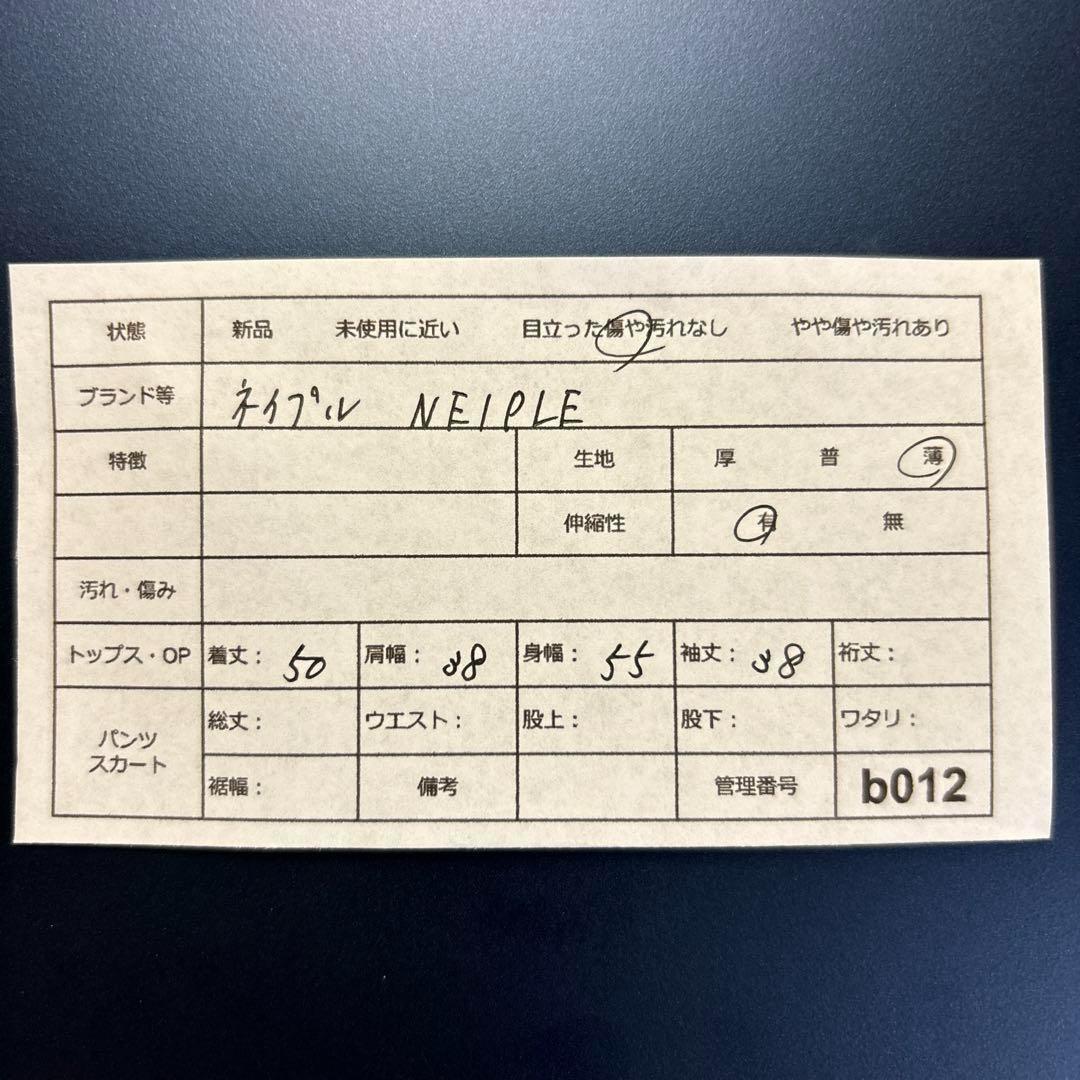 状態 新品 未使用に近い 目立った傷や汚れなし やや傷や汚れあり
ブランド等 ネイプル NEIPLE
特徴 生地 厚 普 薄
伸縮性 有 無
汚れ・傷み
トップス・OP 着丈： 50 肩幅： 38 身幅： 55 袖丈： 38 裄丈：
パンツ スカート 総丈： ウエスト： 股上： 股下： ワタリ：
裾幅： 備考 管理番号 b012